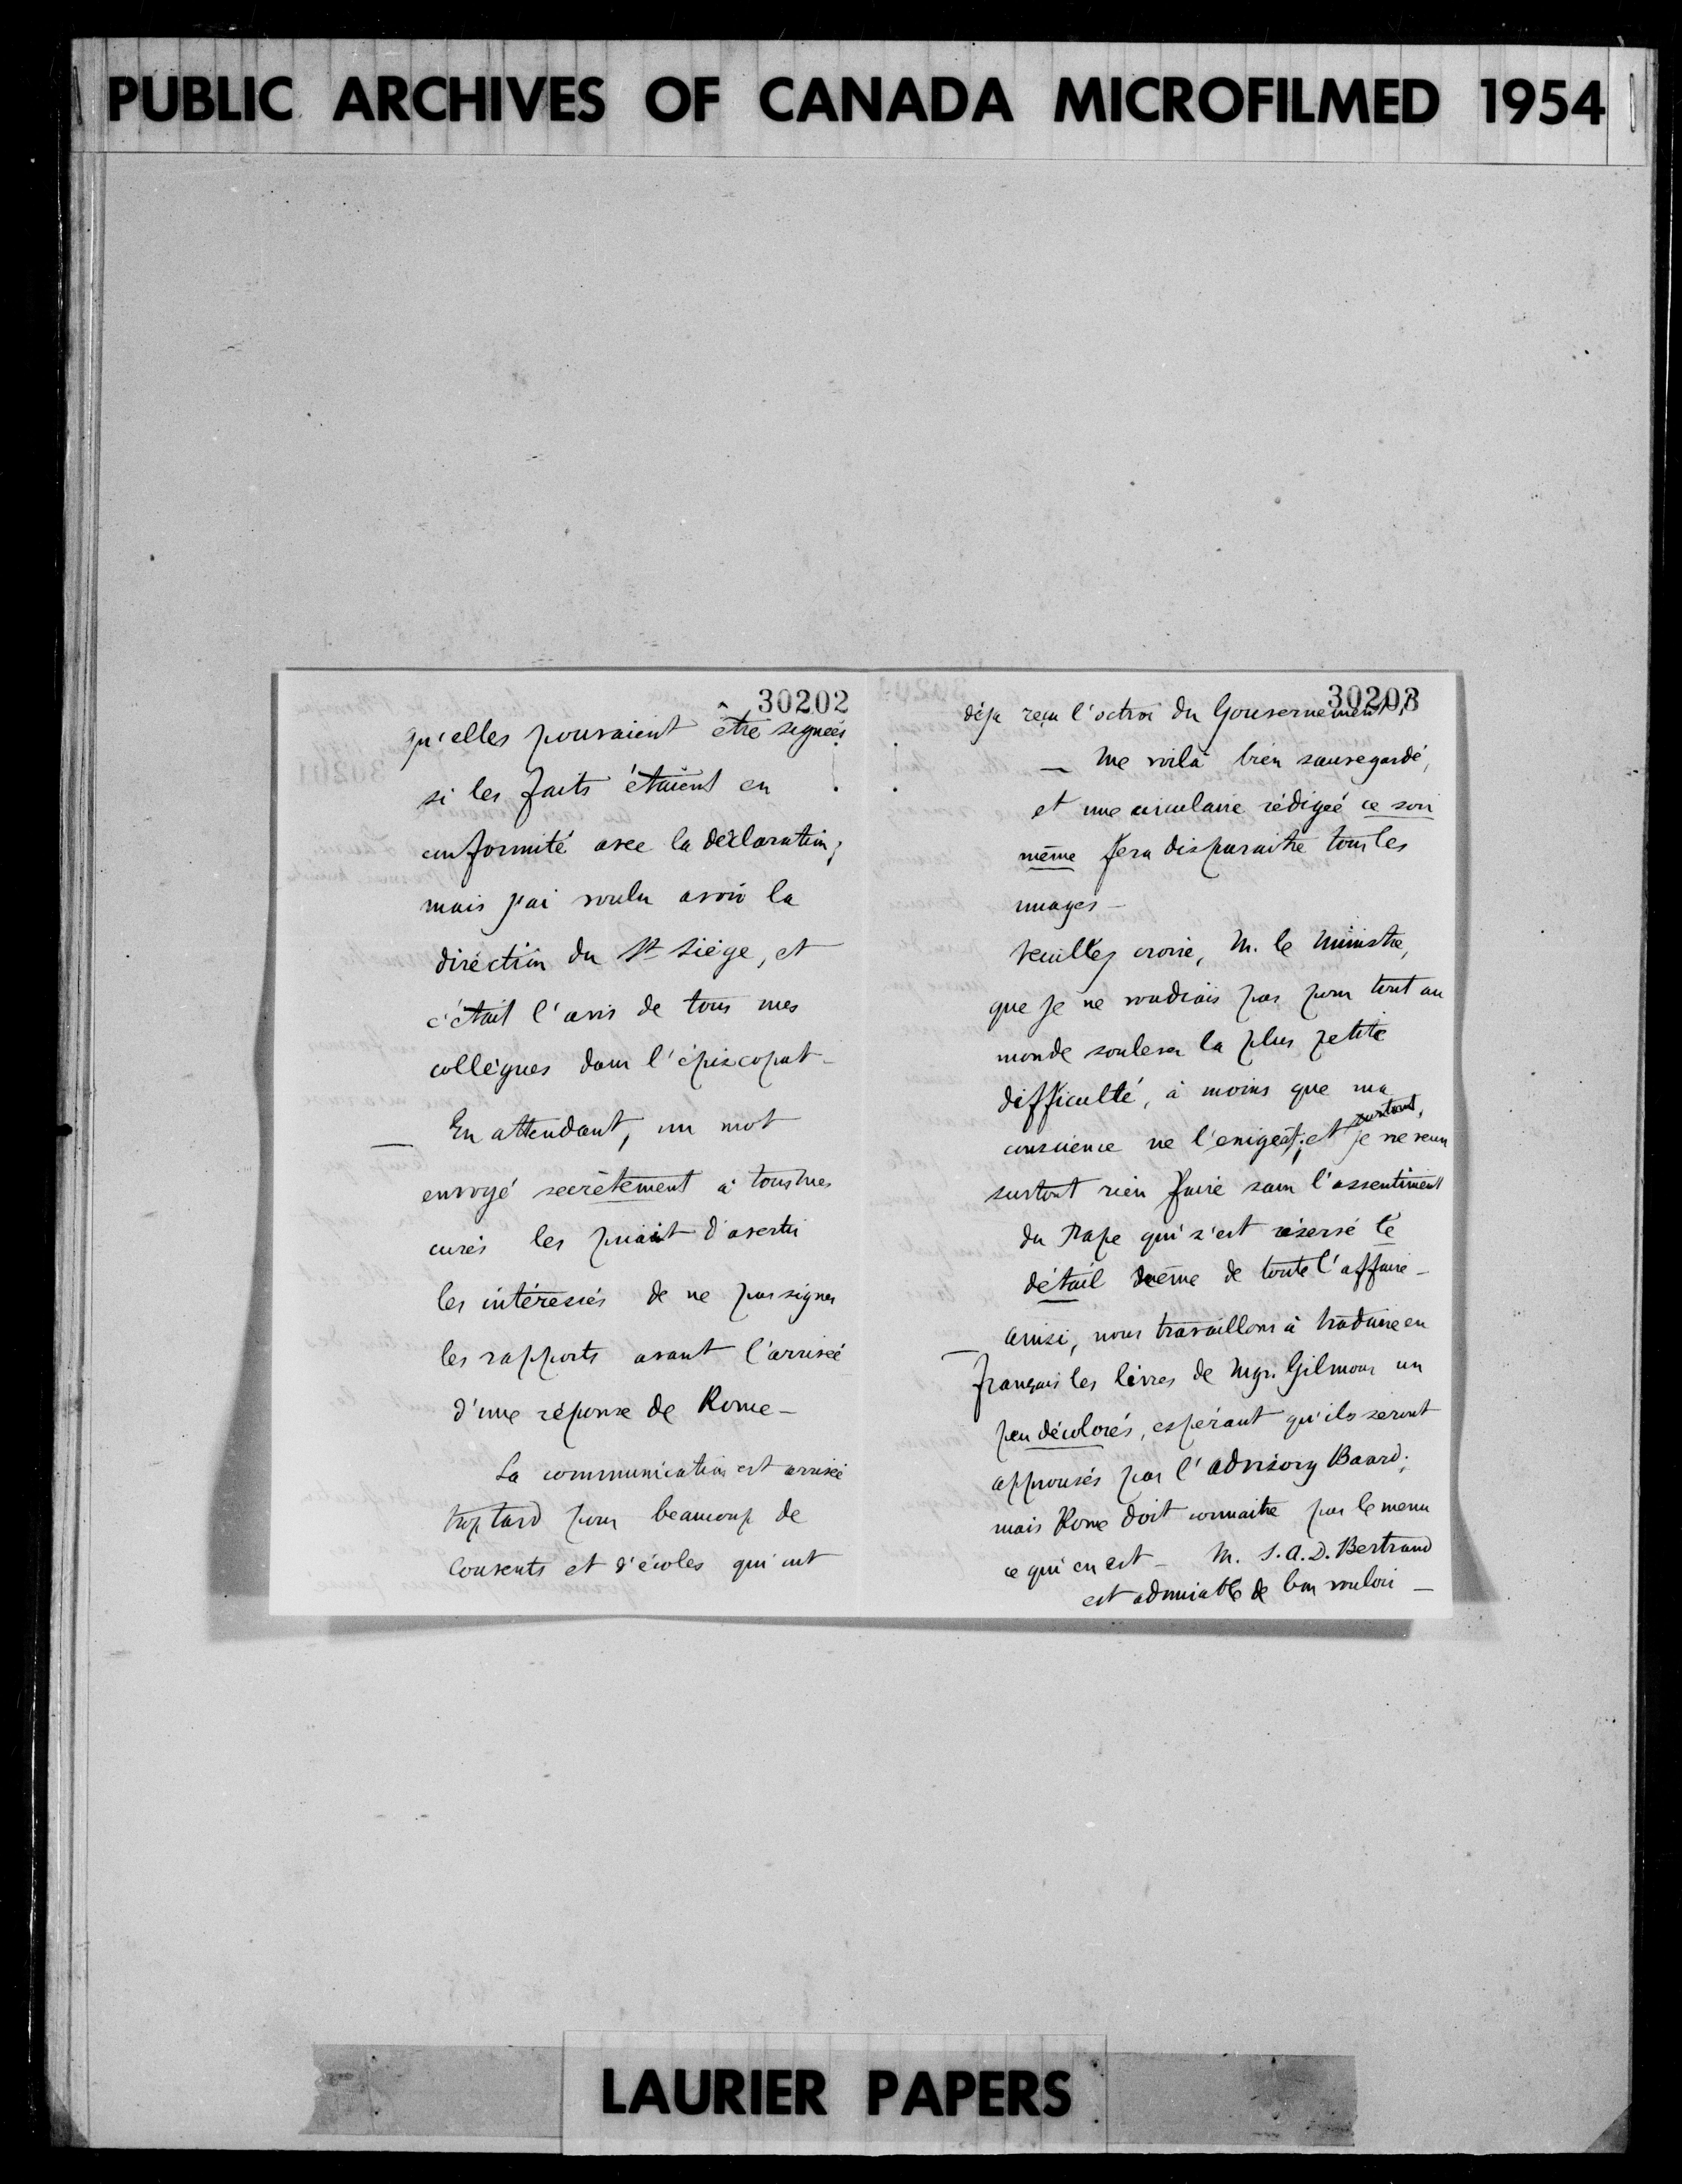 PUBLIC ARCHIVES OF CANADA MICROFILMED 1954
30202
qu'elles pouvaient être signées
si les faits étaient en
conformité avec la déclaration;
mais j'ai voulu avoir la
direction du St Siège, et
c'était l'avis de tous mes
collègues dans l'épiscopat -
— En attendant, un mot
envoyé secrètement à tous mes
curés les priait d'avertir
les intéressés de ne pas signer
les rapports avant l'arrivée
d'une réponse de Rome -
La communication est arrivée
trop tard pour beaucoup de
Couvents et d'écoles qui ont
30203
déjà reçu l'octroi du Gouvernement,
— Me voilà bien sauvegardé,
et une circulaire rédigée ce soir
même fera disparaitre tous les
nuages -
Veuillez croire, M. le Ministre,
que je ne voudrais pas pour tout au
monde soulever la plus petite
difficulté, à moins que ma
conscience ne l'exigeât; et surtout, je ne veux
surtout rien faire sans l'assentiment
du Pape qui s'est réservé le
détail même de toute l'affaire -
— Ainsi, nous travaillons à traduire en
français les livres de Mgr. Gilmour un
peu décolorés, espérant qu'ils seront
approuvés par l'Advisory Board;
mais Rome doit connaitre par le menu
ce qui en est - M. S.A.D. Bertrand
est admirable de bon vouloir —
LAURIER PAPERS